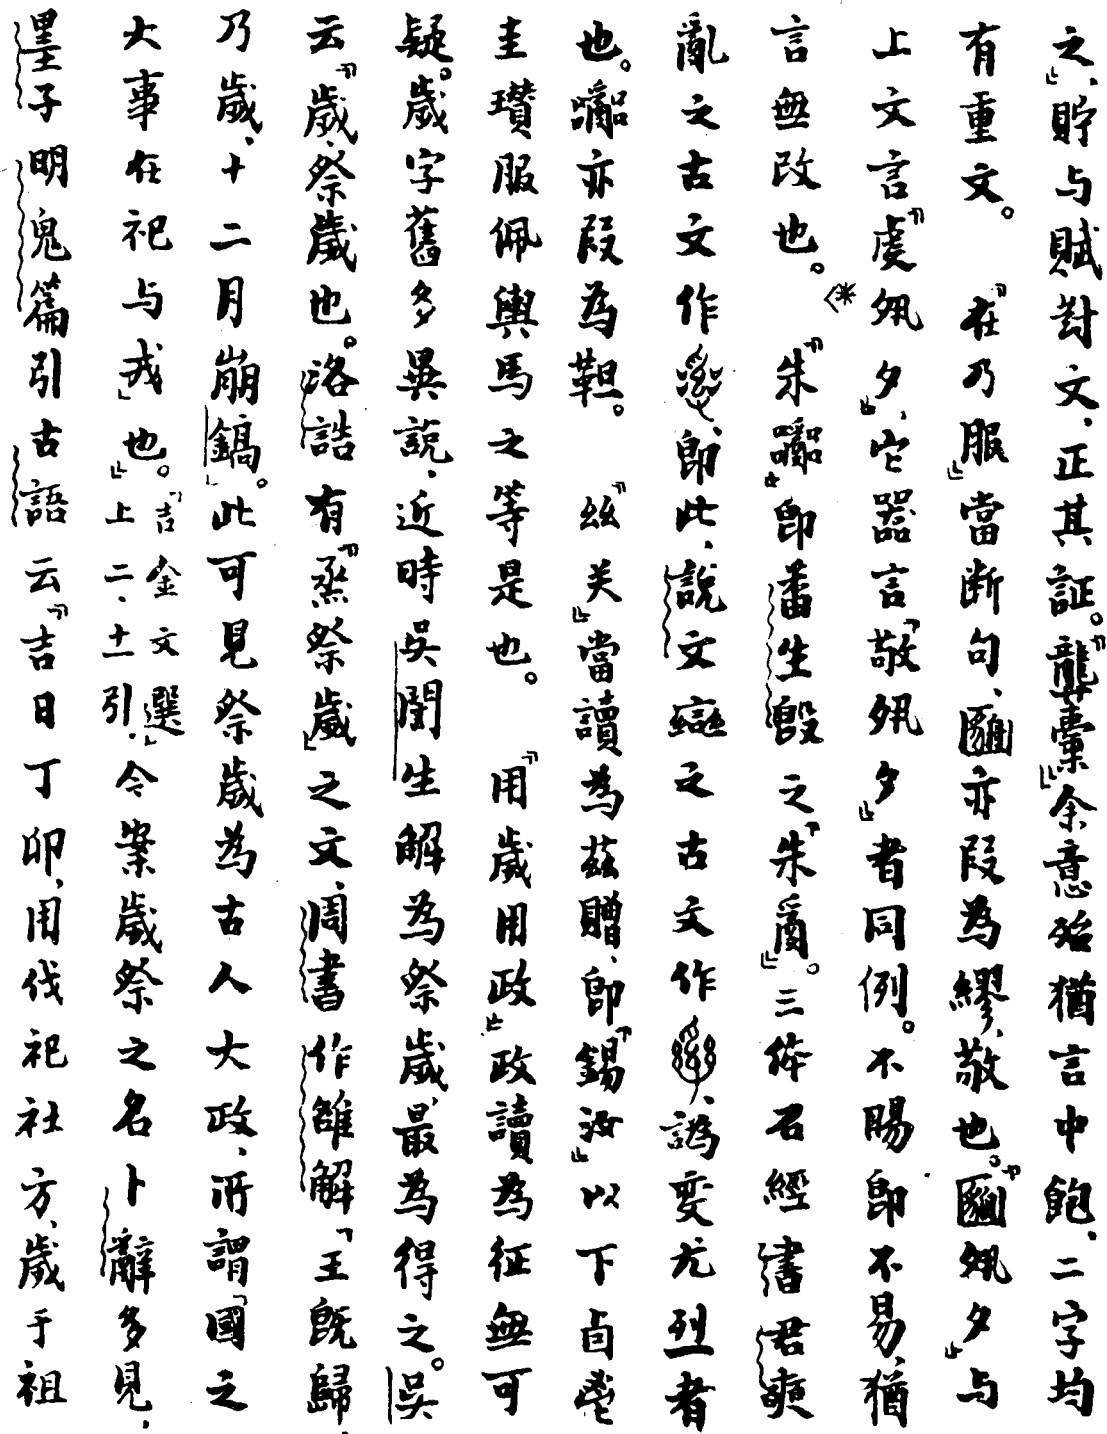 之」，貯与賦對文，正其証。「龔橐」余意殆猶言中飽，二字均
有重文。「在乃服」當断句，𤔲亦叚為繆，敬也。「𤔲夙夕」与
上文言「虔夙夕」，它器言「敬夙夕」者同例。不賜即不易，猶
言無改也。「朱𠷎」即番生𣪘之「朱𤔔」。三体石經書君奭
亂之古文作，即此，說文䜌之古文作，譌変尤烈者
也。𠷎亦叚為靼。「玆关」當讀為茲贈，即「錫汝」以下卣鬯
圭瓚服佩輿馬之等是也。「用歲用政」政讀為征無可
疑。歲字舊多異説，近時吳闓生解為祭歲，最為得之。吳
云「歲，祭歲也。洛誥有「烝祭歲」之文，周書作雒解「王既歸，
乃歲，十二月崩鎬」。此可見祭歲為古人大政，所謂「國之
大事在祀与戎」也。」「吉金文選」上二、十一引，今案歲祭之名卜辭多見，
墨子明鬼篇引古語云「吉日丁卯，用伐祀社方，歲于祖